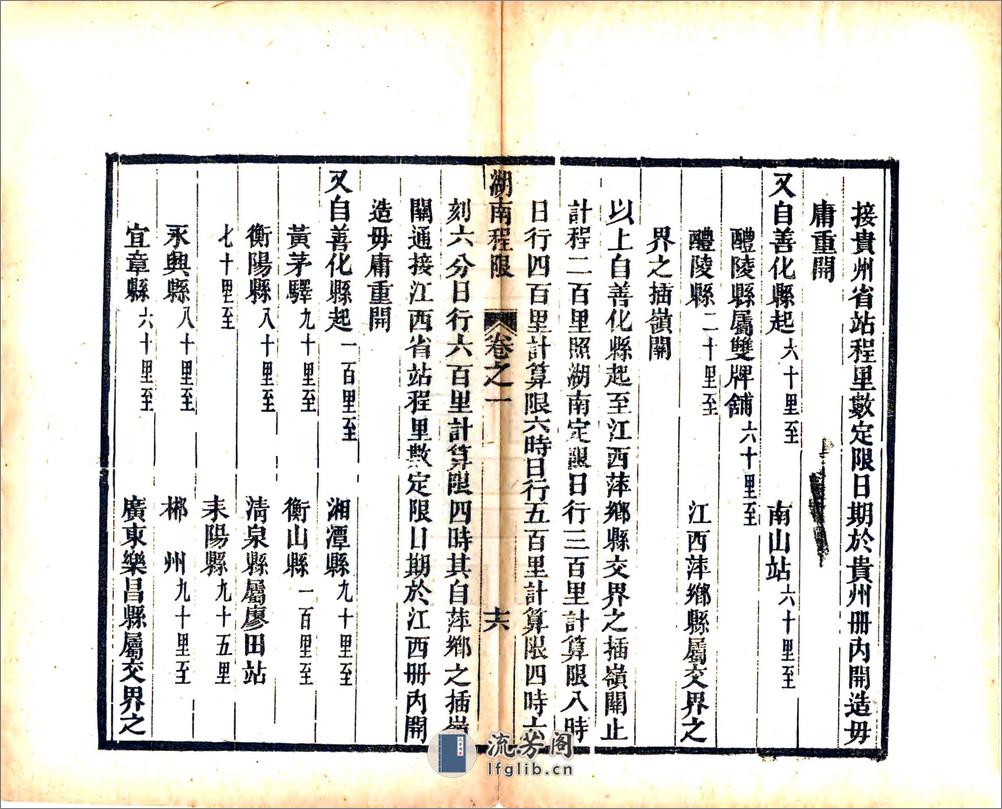 接貴州省站程里數定限日期於貴州冊內開造毋
庸重開
又自善化縣起六十里至 南山站六十里至
醴陵縣屬雙牌舖六十里至
醴陵縣二十里至 江西萍鄉縣屬交界之
界之插嶺關
以上自善化縣起至江西萍鄉縣交界之插嶺關止
計程二百里照湖南定限日行三百里計算限八時
日行四百里計算限六時日行五百里計算限四時六
湖南程限 卷之一 十六
刻六分日行六百里計算限四時其自萍鄉之插嶺
關通接江西省站程里數定限日期於江西冊內開
造毋庸重開
又自善化縣起一百里至 湘潭縣九十里至
黃茅驛九十里至 衡山縣一百里至
衡陽縣八十里至 清泉縣屬廖田站
七十里至 耒陽縣九十五里
永興縣八十里至 郴州九十里至
宜章縣六十里至 廣東樂昌縣屬交界之
流芳閣
lfglib.cn